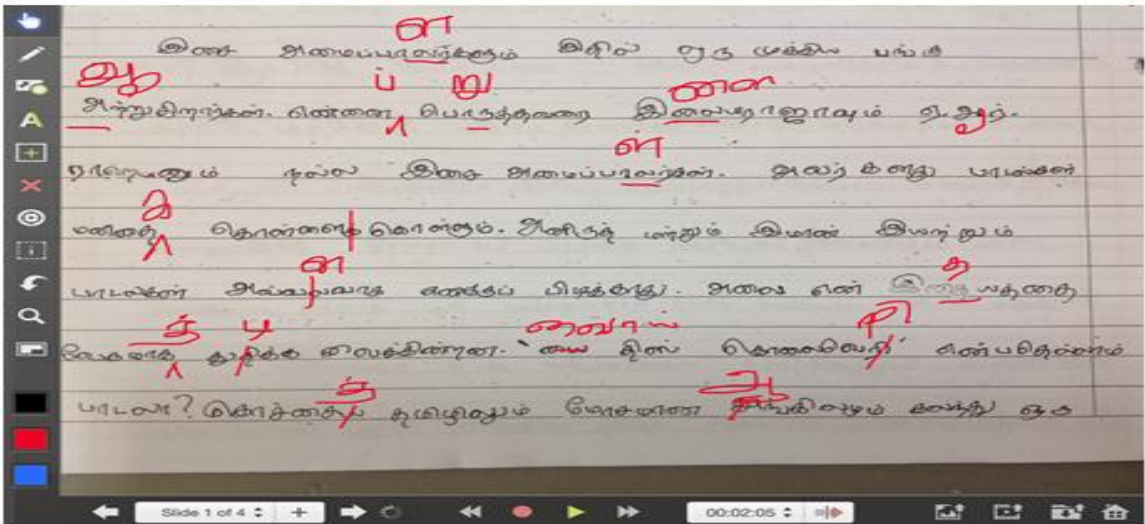 ள
இசை அமைப்பாலர்களும் இதில் ஒரு முக்கிய பங்கு
ஆ ப் று ளை
அற்றுகிறார்கள். என்னை பொருத்தவரை இலையராஜாவும் ஏ.ஆர்.
ள
ரஹ்மானும் நல்ல இசை அமைப்பாலர்கள். அவர்களது பாடல்கள்
மனதை கொள்ளை கொள்ளும். அனிருத் மற்றும் இமான் இயற்றும்
ள
பாடல்கள் அவ்வலவாக எனக்குப் பிடிக்காது. அவை என் இதயத்தை
த் டி வொய் றி
வேகமாக துடிக்க வைக்கின்றன. திஸ் கொலைவெறி' என்பதெல்லாம்
த் ஆ
பாடலா? கொச்சை தமிழிலும் மோசமான கலந்து ஒரு
A
Slide 1 of 4
+
00:02:05